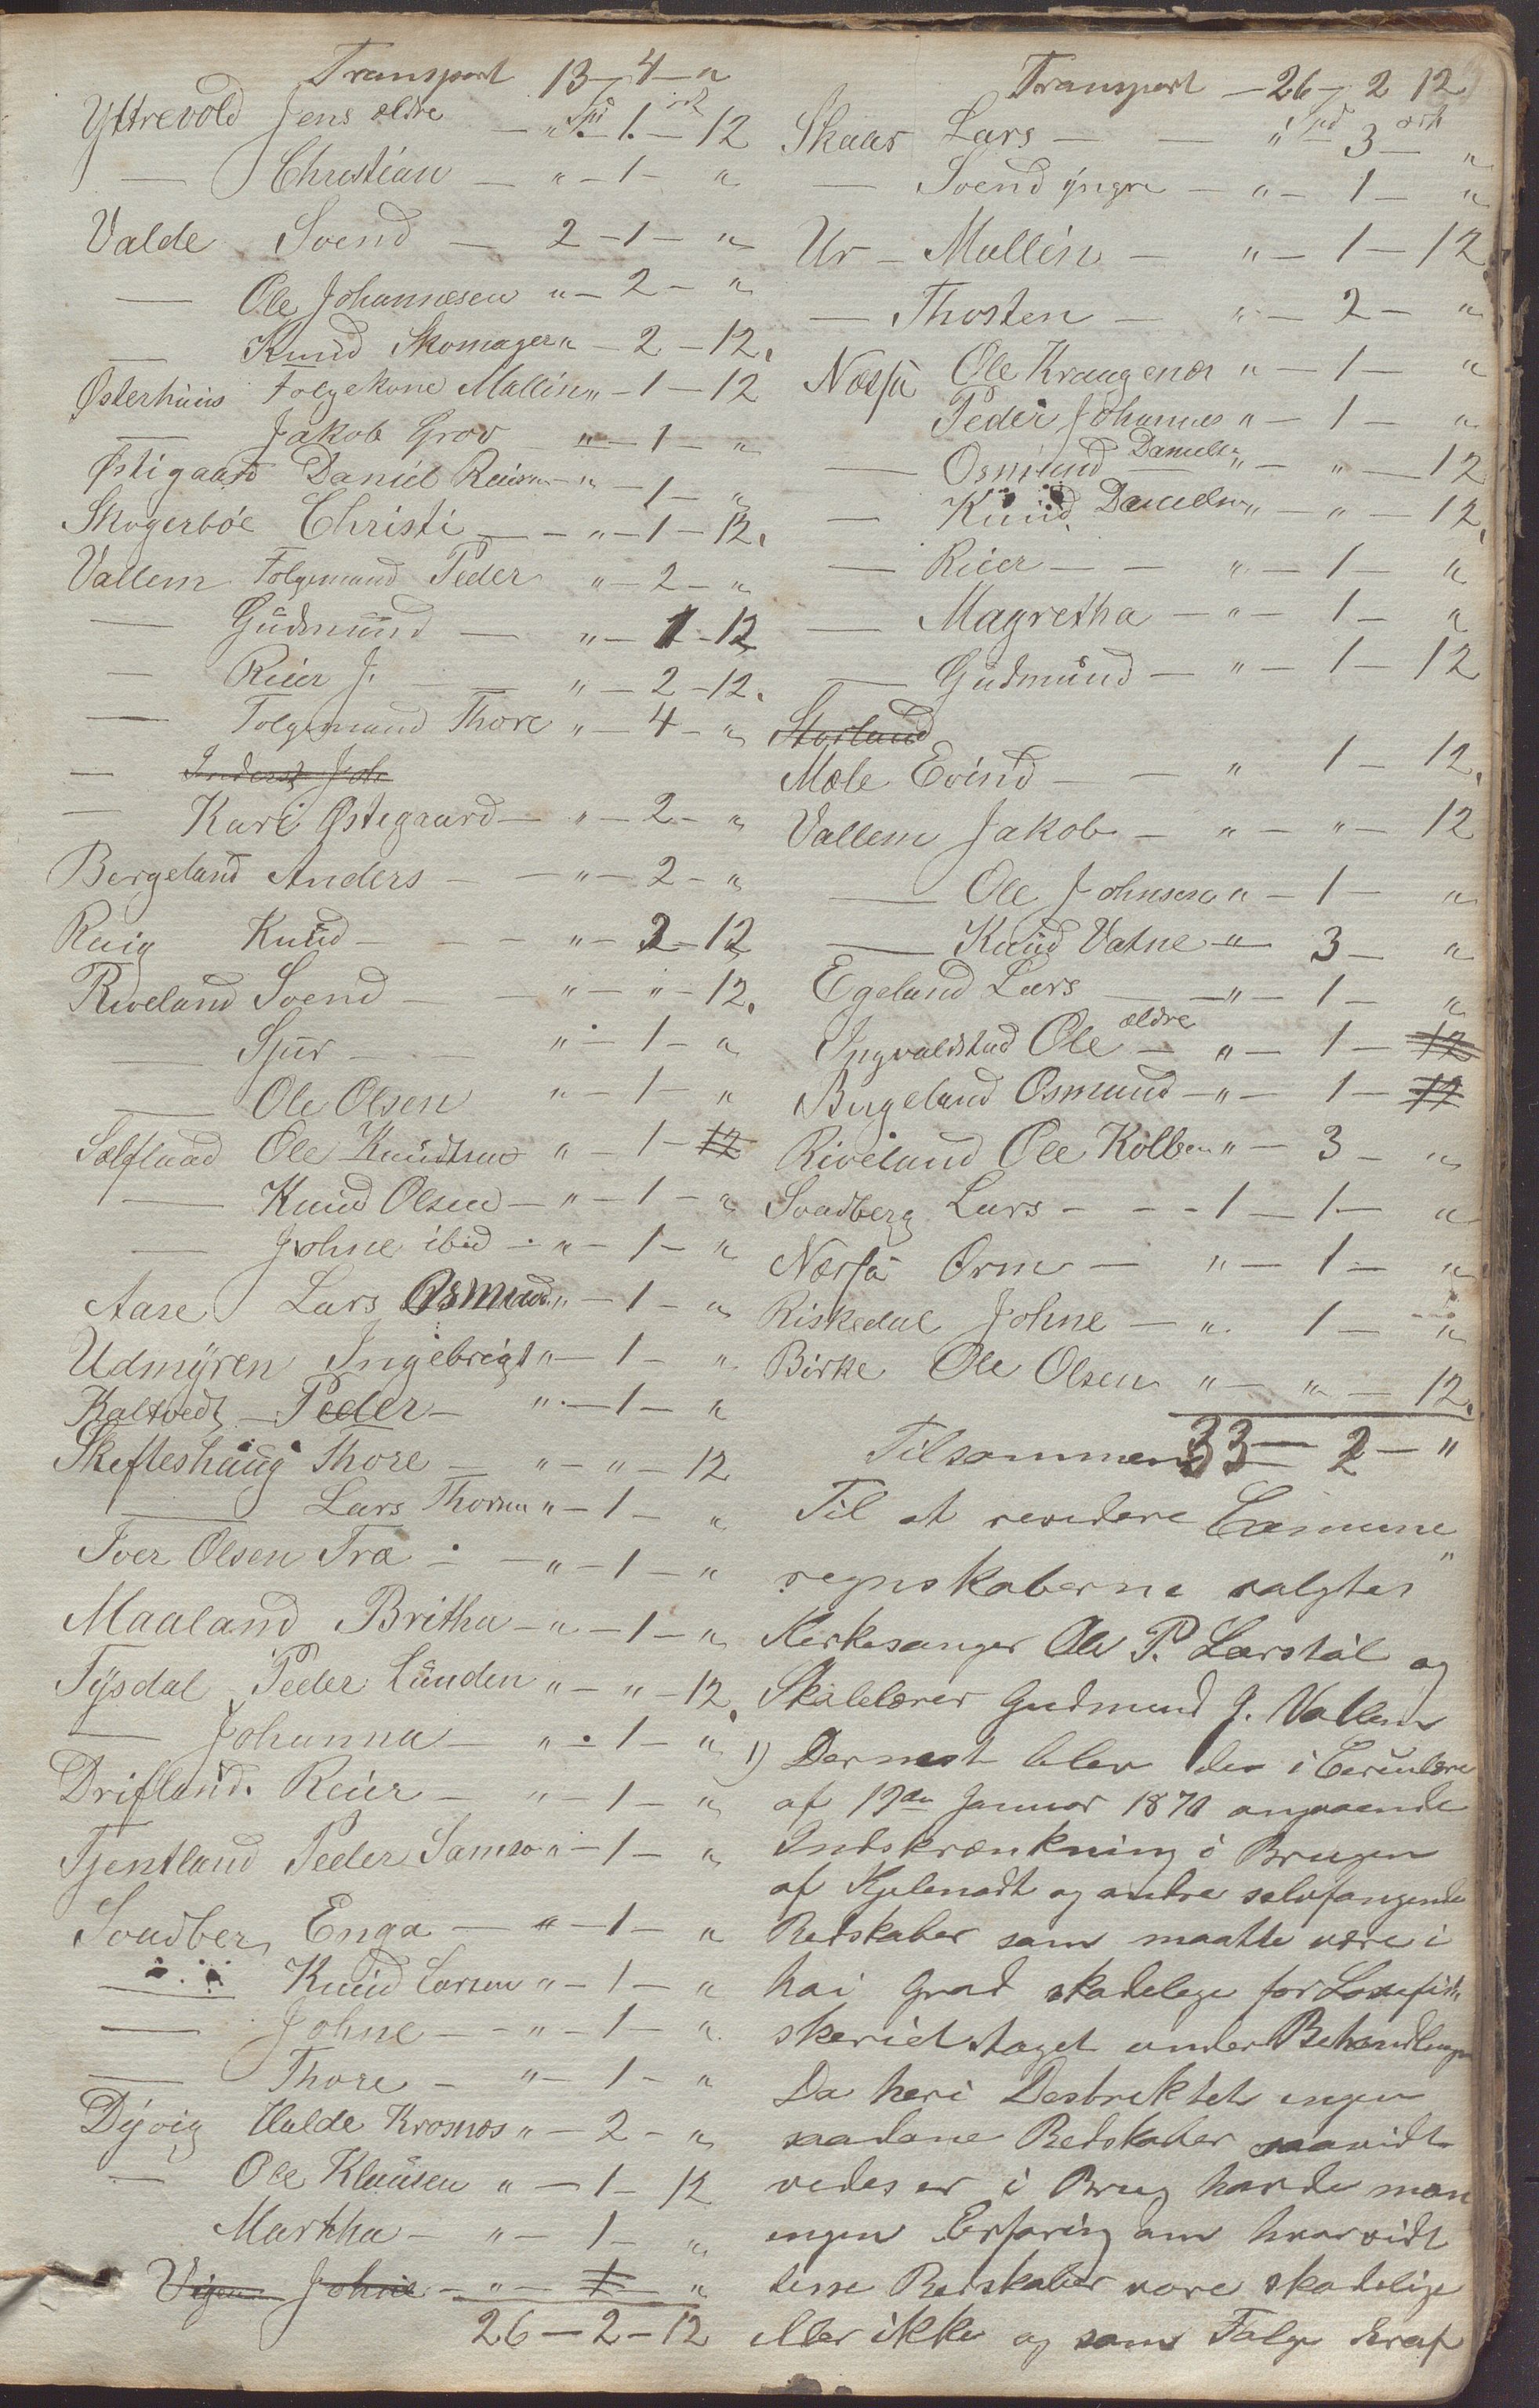 Transport 13 - 4 - "
Yttrevold Jens ældre - " Spd - 1 - ort 12
— Christian - " - 1 - "
Valde Svend - 2 - 1 - "
— Ole Johannesen " - 2 - "
— Knud Skomager " - 2 - 12.
Østerhuus Folgekone Mallin " - 1 - 12
— Jakob Grov - " - 1 - "
Østigaard Daniel Reiers - " - 1 - "
Skogerböe Christi - - " - 1 - 12.
Vallem Folgemand Peder " - 2 - "
— Gudmund - " - 1 - 12
— Reier J. - " - 2 - 12.
— Folgemand Thore " - 4 - "
— Inderst Joh
— Kari Østigaard - " - 2 - "
Bergeland Anders - - " - 2 - "
Reiig Knud - - - " - 2 - 12
Riveland Svend - - " - " - 12.
— Sjur - - " - 1 - "
— Ole Olsen " - 1 - "
Sølfluad Ole Knudsen " - 1 - 12
— Knud Olsen - " - 1 - "
— Johne ibid - " - 1 - "
Aase Lars Osmund. " - 1 - "
Udmÿren Ingebrigt " - 1 - "
Kaltvedt - Peder - " - 1 - "
Skifteshaug Thore - " - " - 12
— Lars Thorsen " - 1 - "
Iver Olsen Træ - - " - 1 - "
Maaland Britha - " - 1 - "
Tÿsdal Peder Lunden " - " - 12.
— Johanna - " - 1 - "
Drifland. Reier - " - 1 - "
Tjentland Peder Samso " - 1 - "
Svadberg Enga - " - 1 - "
— Knud Larsen " - 1 - "
— Johne - - " - 1 - "
— Thore - " - 1 - "
Dÿvig Halde Krosnæs " - 2 - "
— Ole Klausen " - 1 - 12
Martha - " - 1 - "
Vigen Johne - " - 1 "
26 - 2 - 12
Transport - 26 - 2 12
Skaar Lars - - " Spd - 3 ort - "
— Svend ÿngre - " - 1 - "
Ur - Mallin - " - 1 - 12
— Thosten - " - 2 - "
Næssa Ole Kraugenæs " - 1 - "
Peder Johannes " - 1 - "
— Osmund Daniels " - " - 12
— Knud Danielsen " - " - 12.
— Reier - - " - 1 - "
— Magretha - " - 1 - "
— Gudmund - " - 1 - 12
Storland
Mæle Evind - - " 1 - 12.
Vallem Jakob - " - " - 12
— Ole Johnsen " - 1 - "
— Knud Vatne " - 3 - "
Egeland Lars - " - 1 - "
Ingvaldstad Ole ældre - " - 1 - 12
Bergeland Osmund - " - 1 - 12
Riveland Ole Kolben " - 3 - "
Svadberg Lars - - - 1 - 1 - "
Næssa Orm - " - 1 - "
Riskedal Johne - " 1 - "
Birke Ole Olsen " - " - 12.
Tilsammen 33 - 2 - "
Til at revidere Comune
regnskaberne valgtes
Kirkesanger Ole P. Lærstøl og
Skolelærer Gudmund J. Vallem
1) Dernest blev der i Circulære
af 19de Januar 1870 angaaende
Indskrænkning i Brugen
af Kjelenodt og andre selvfangende
Redskaber som maatte være i
høi Grad skadelege for Laxefi
skeriet taget under Behandlingen
Da heri Destriktet ingen
saadane Redskaber saavidt
vedes er i Brug havde man
ingen Erfaring om hvorvidt
disse Redskaber vare skadelige
eller ikke og som Følge deraf